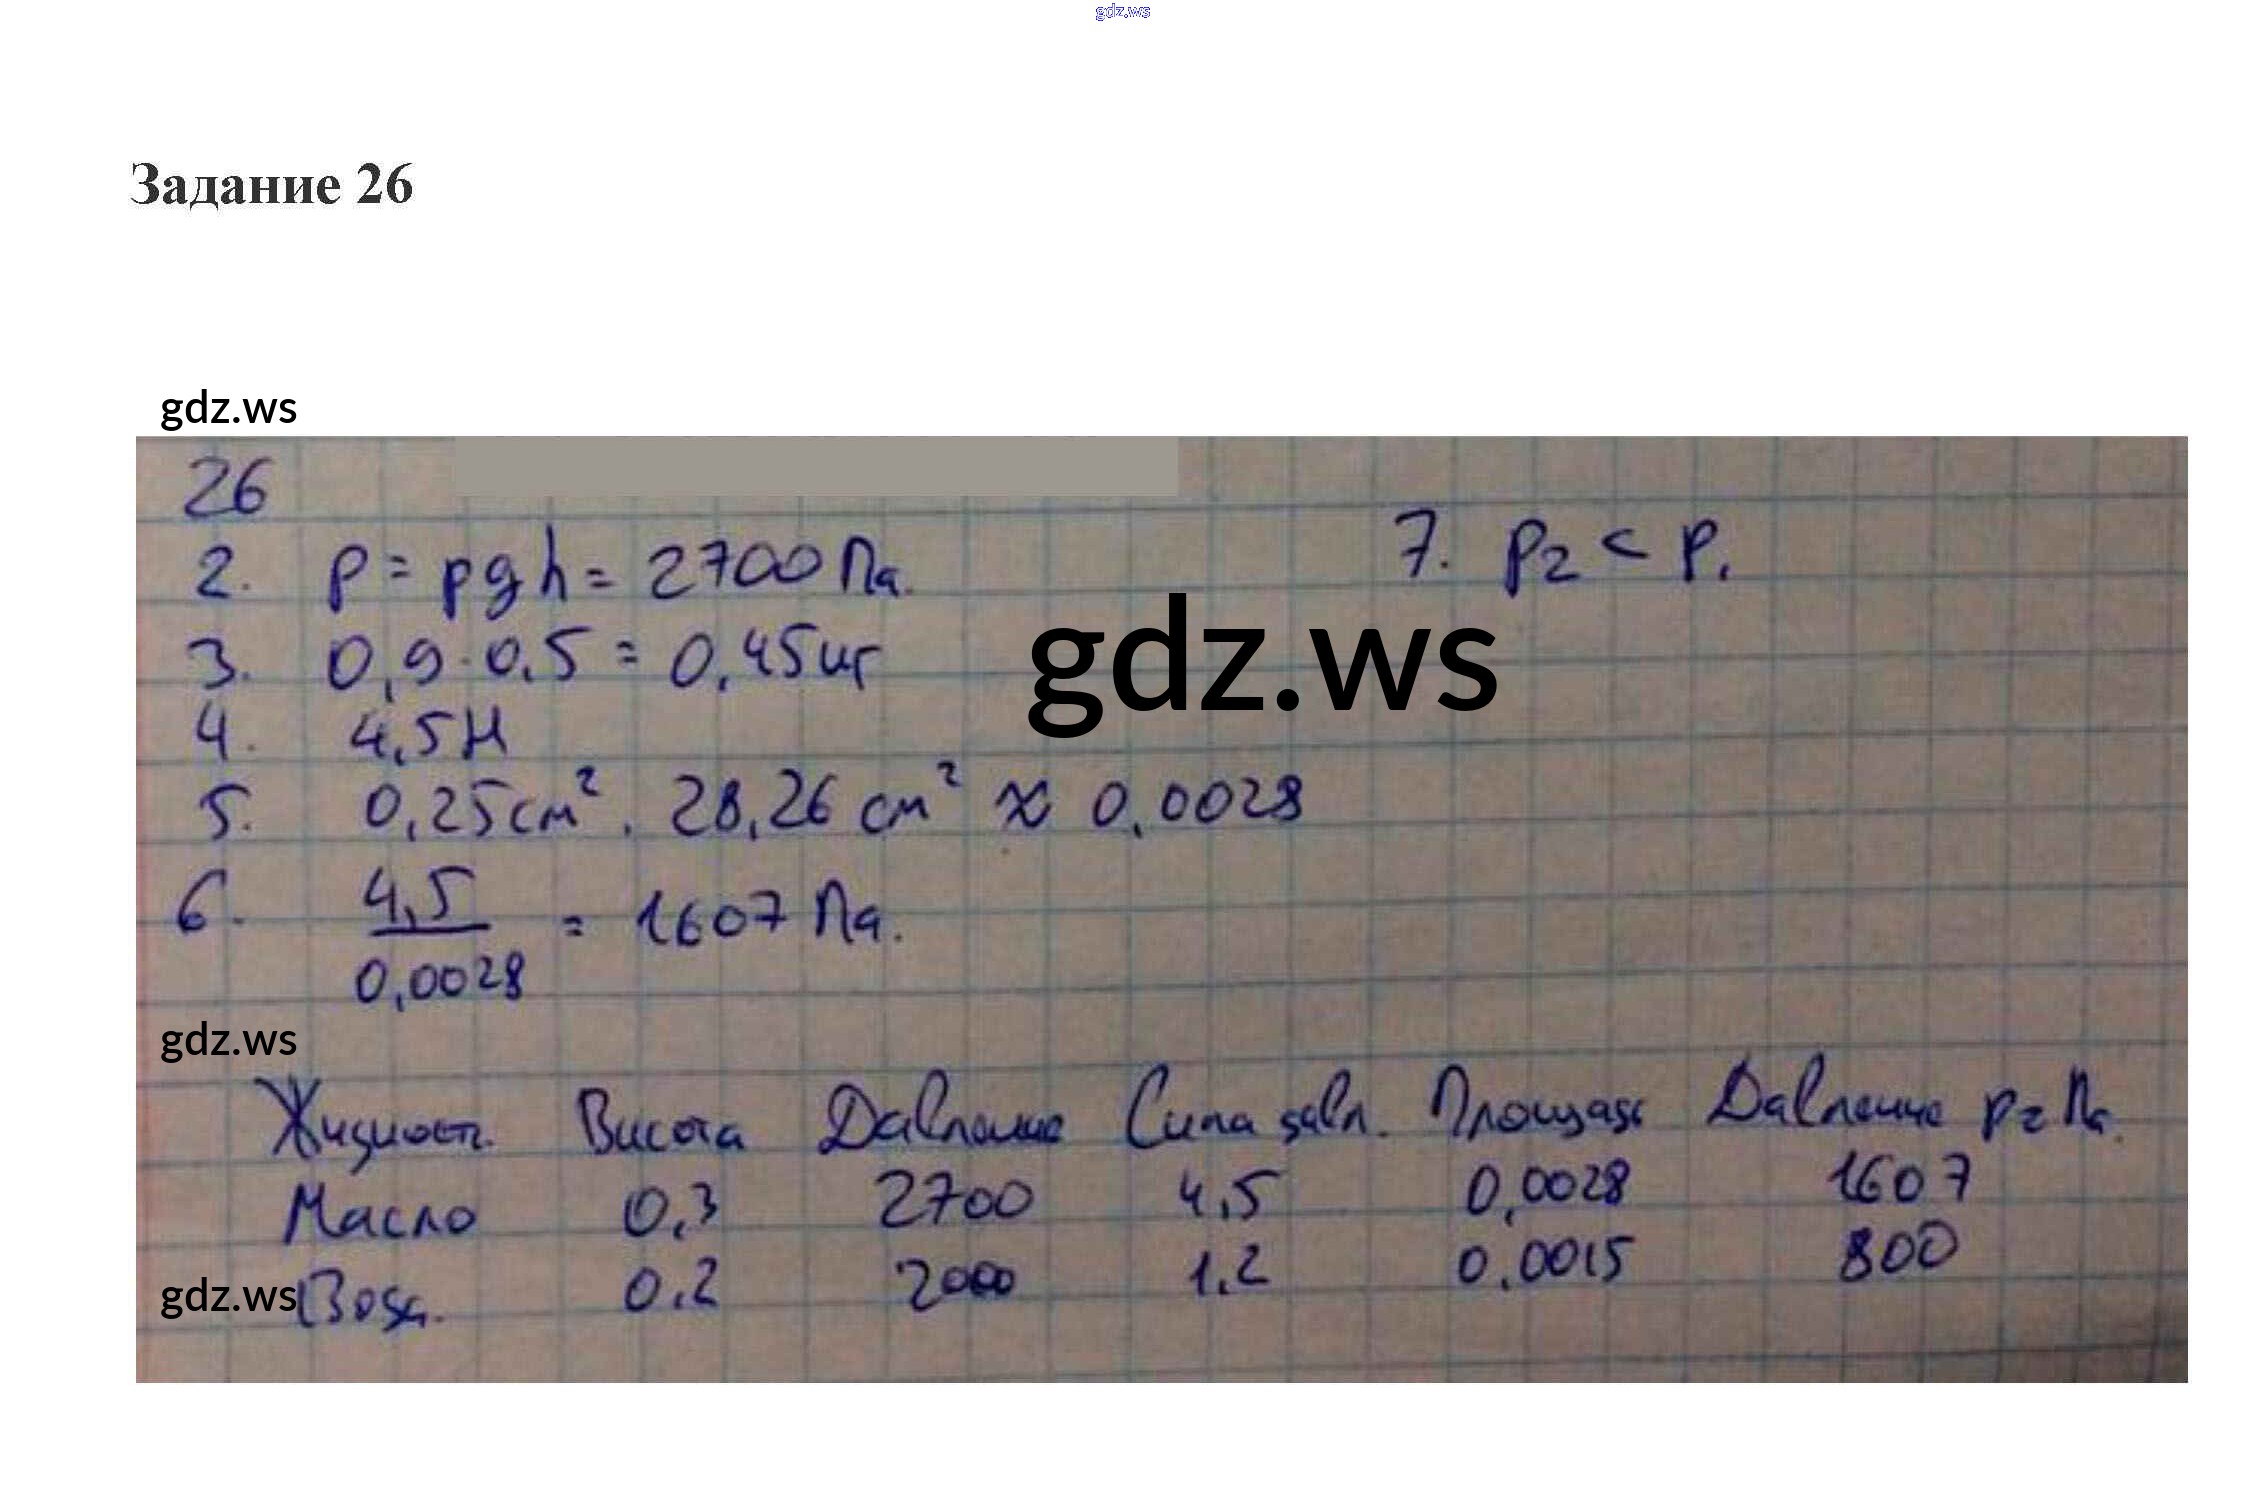 gdz.ws
Задание 26
gdz.ws
26
2. p = ρgh = 2700 Па.
7. p2 < p1
gdz.ws
3. 0,9 · 0,5 = 0,45 кг
4. 4,5 Н
5. 0,25 см² · 28,26 см² ≈ 0,0028
6. 4,5 / 0,0028 = 1607 Па.
gdz.ws
Жидкость Висота Давление Сила давл. Площадь Давление p2 Па.
Масло 0,3 2700 4,5 0,0028 1607
gdz.ws
Вода. 0,2 2000 1,2 0,0015 800